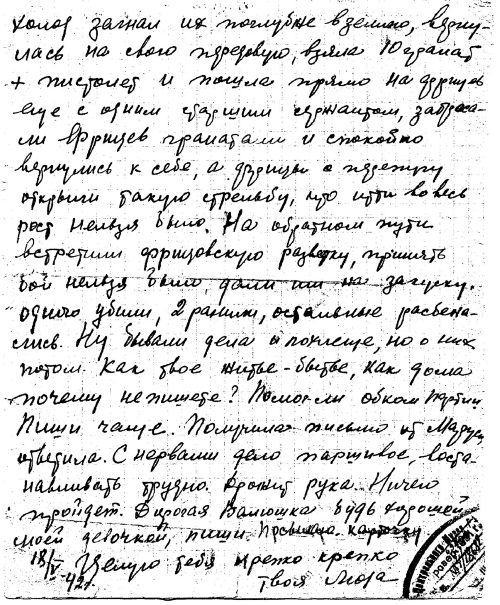 холод загнал их поглубже в землю, верну-
лась на свою передовую, взяла 10 гранат
+ пистолет и пошла прямо на фрицев
еще с одним старшим сержантом, забраса-
ли фрицев гранатами и спокойно
вернулись к себе, а фрицы с перепугу
открыли такую стрельбу, что итти во весь
рост нельзя было. На обратном пути
встретили фрицовскую разведку, принять
бой нельзя было, дали им на закуску.
одного убили, 2 ранили, остальные разбежа-
лись. Ну бывали дела и похлеще, но о них
потом. Как твое житье-бытье, как дома
почему не пишете? Помог ли обком партии
Пиши чаще. Получила письмо от Маруси
ответила. С нервами дело паршивое, воста-
навливать трудно. Дрожит рука. Ничего
пройдет. Дорогая Валюшка будь хорошей
моей девочкой, пиши. Посылаю карточку
18/V-42г. Целую тебя крепко крепко
твоя Люда